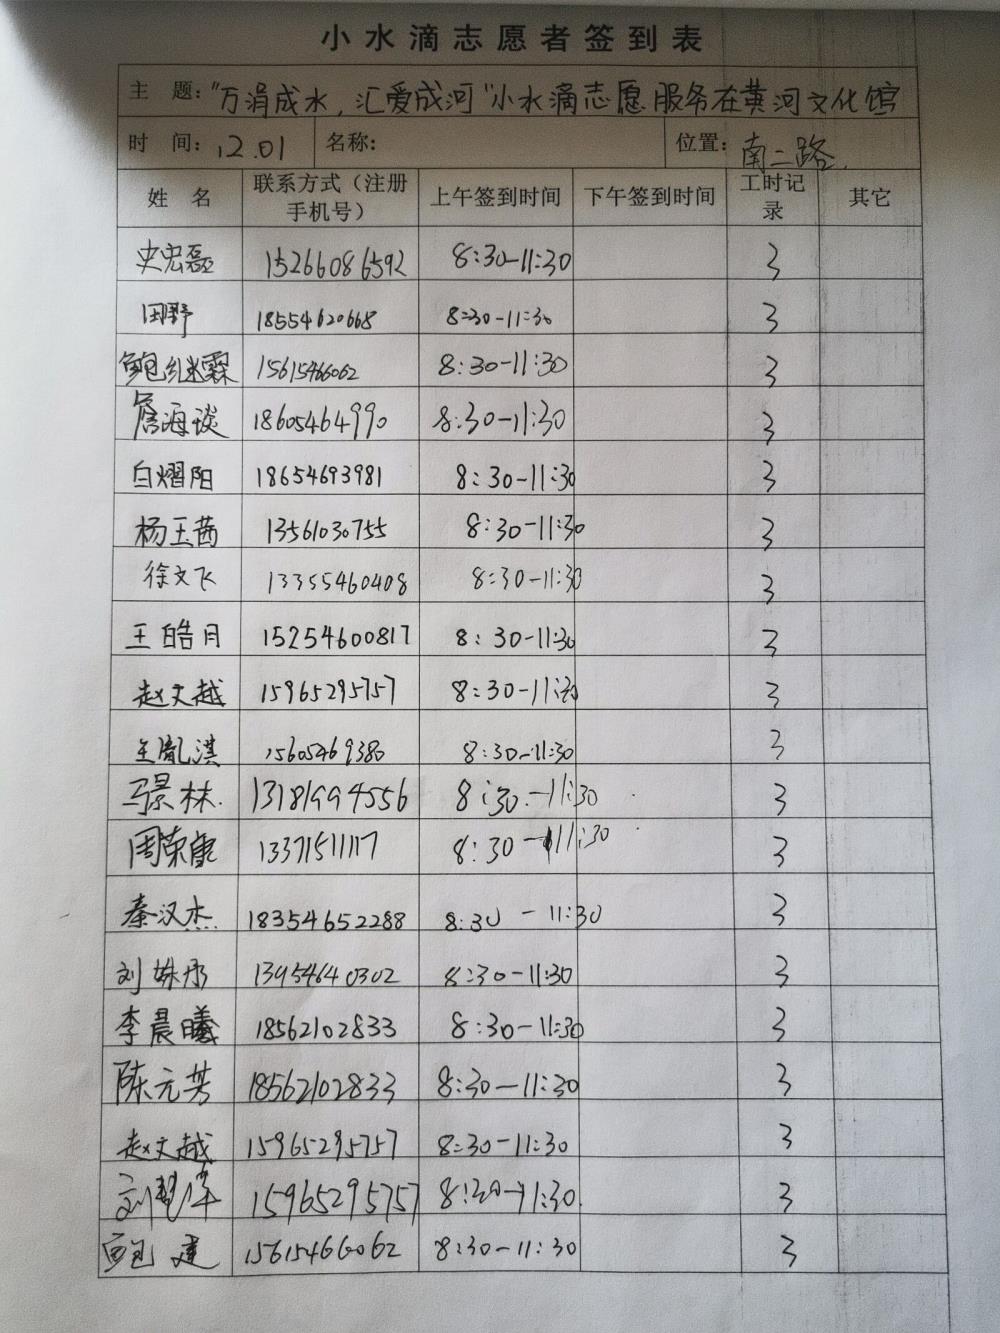 小水滴志愿者签到表
主 题：“万涓成水，汇爱成河”小水滴志愿服务在黄河文化馆
时 间：12.01 名称： 位置：南二路.
姓 名 联系方式（注册手机号） 上午签到时间 下午签到时间 工时记录 其它
史宏磊 15266086592 8:30-11:30 3
田野 18554620668 8:30-11:30 3
鲍继霖 15615466062 8:30-11:30 3
詹海琰 18605464990 8:30-11:30 3
白熠阳 18654693981 8:30-11:30 3
杨玉茜 13561030755 8:30-11:30 3
徐文飞 13355460408 8:30-11:30 3
王皓月 15254600817 8:30-11:30 3
赵文越 15965295757 8:30-11:30 3
王胤淇 15605469380 8:30-11:30 3
马景林. 13181994556 8:30-11:30 3
周荣康 13371511117 8:30-11:30 3
秦汉杰 18354652288 8:30-11:30 3
刘姝彤 13954640302 8:30-11:30 3
李晨曦 18562102833 8:30-11:30 3
陈元芳 18562102833 8:30-11:30 3
赵文越 15965295757 8:30-11:30 3
刘 15965295757 8:30-11:30. 3
鲍建 15615466062 8:30-11:30 3